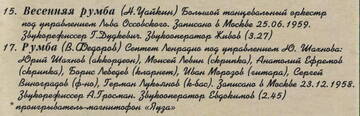 15. Весенняя румба (Н.Чайкин) Большой танцевальный оркестр
под управлением Льва Оссовского. Записано в Москве 25.06.1959.
Звукорежиссер Г.Дудкевич. Звукооператор Живов (3.27)
17. Румба (В.Федоров) Септет Ленрадио под управлением Ю. Шахнова:
Юрий Шахнов (аккордеон), Моисей Левин (скрипка), Анатолий Ефремов
(скрипка), Борис Лебедев (кларнет), Иван Морозов (гитара), Сергей
Виноградов (ф-но), Герман Лукьянов (к-бас). Записано в Москве 23.12.1958.
Звукорежиссер А.Гросман. Звукооператор Евдокимов (2.45)
* проигрыватель-магнитофон «Луза»